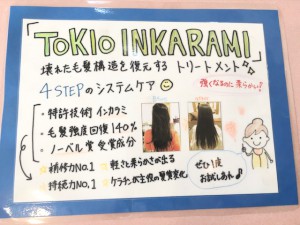 「TOKIO INKARAMI」
壊れた毛髪構造を復元する トリートメント
4 STEPのシステムケア
強くなるのに柔らかい♪
・特許技術 インカラミ
・毛髪強度回復140%
・ノーベル賞 受賞成分
補修力No.1
軽さと柔らかさが出る
持続力No.1
ケラチンが主役の髪質変化
ぜひ1度
お試しあれ♪